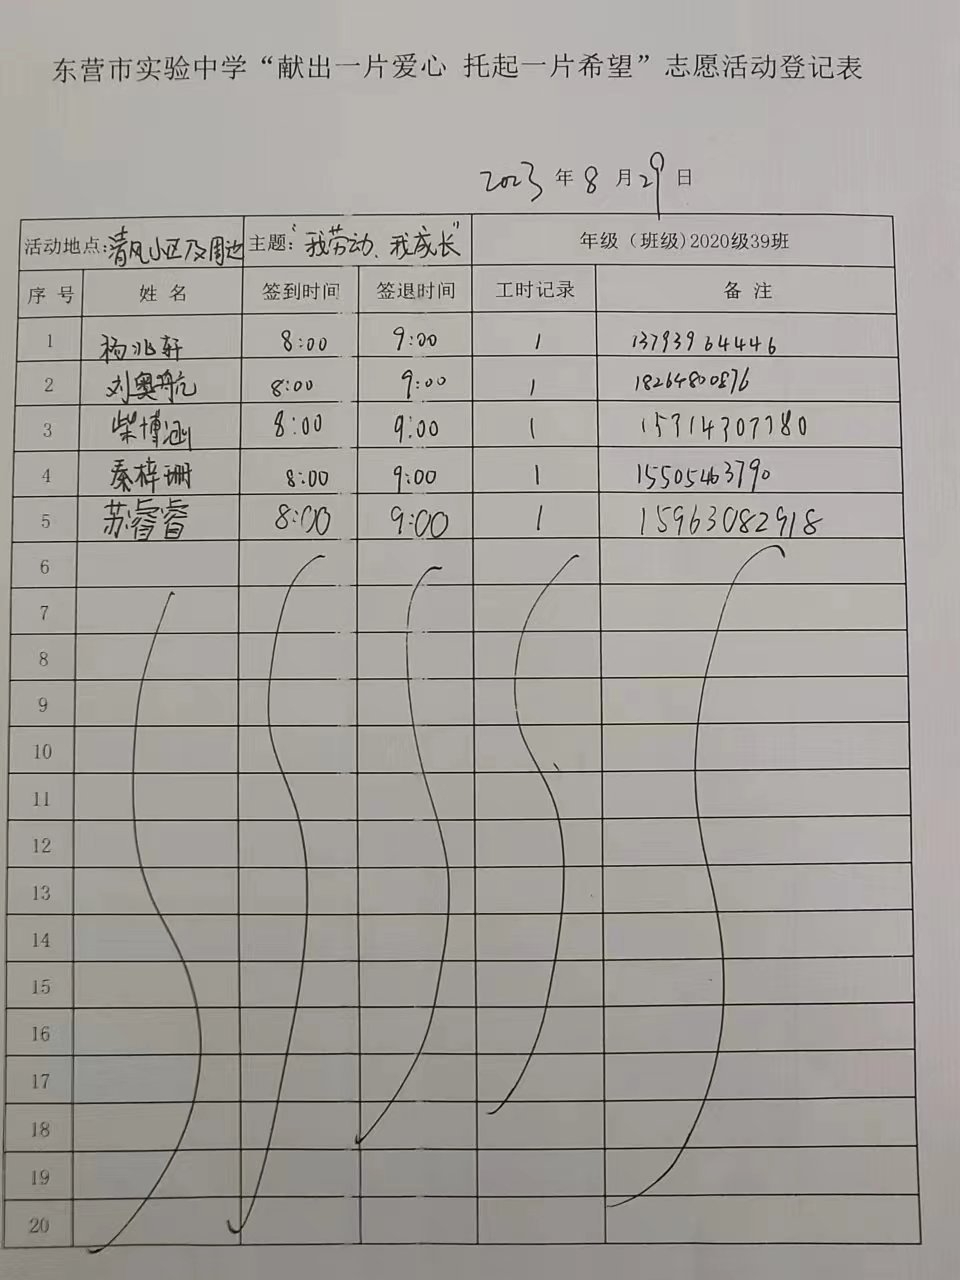 东营市实验中学“献出一片爱心 托起一片希望”志愿活动登记表
2023 年 8 月 29 日
活动地点:清风小区及周边 主题:“我劳动、我成长” 年级（班级)2020级39班
序 号 姓 名 签到时间 签退时间 工时记录 备 注
1 杨兆轩 8:00 9:00 1 13793964446
2 刘奥航 8:00 9:00 1 18264800876
3 柴博涵 8:00 9:00 1 15314307780
4 秦梓珊 8:00 9:00 1 15505463790
5 苏睿睿 8:00 9:00 1 15963082918
6
7
8
9
10
11
12
13
14
15
16
17
18
19
20